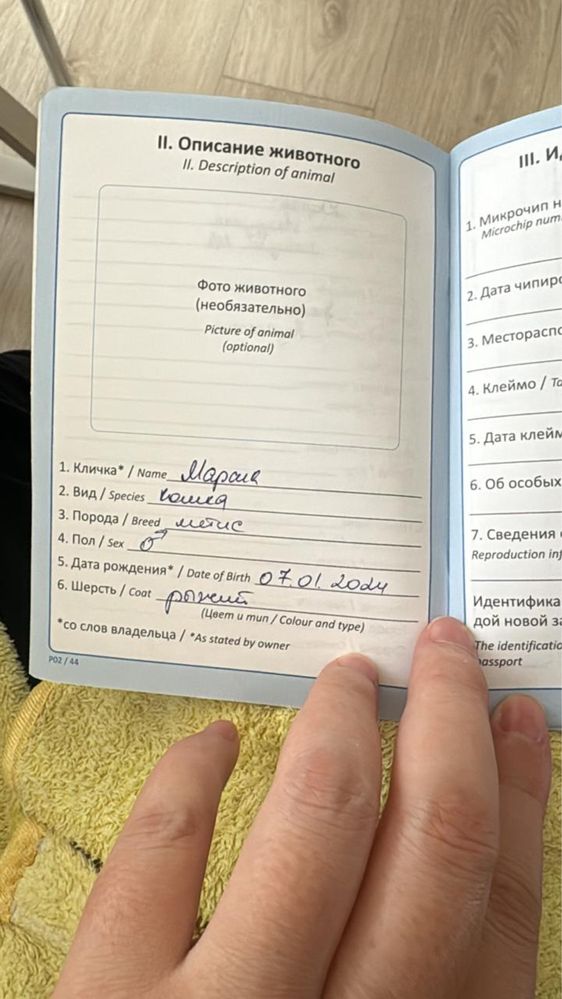 II. Описание животного
II. Description of animal
Фото животного
(необязательно)
Picture of animal
(optional)
1. Кличка* / Name
2. Вид / Species кошка
3. Порода / Breed метис
4. Пол / Sex ♂
5. Дата рождения* / Date of Birth 07.01.2024
6. Шерсть / Coat рыжий
(Цвет и тип / Colour and type)
*со слов владельца / *As stated by owner
P02 / 44
III. И
1. Микрочип н
Microchip num
2. Дата чипиро
3. Местораспо
4. Клеймо / Ta
5. Дата клейм
6. Об особых
7. Сведения
Reproduction inf
Идентифика
дой новой за
The identificatio
passport